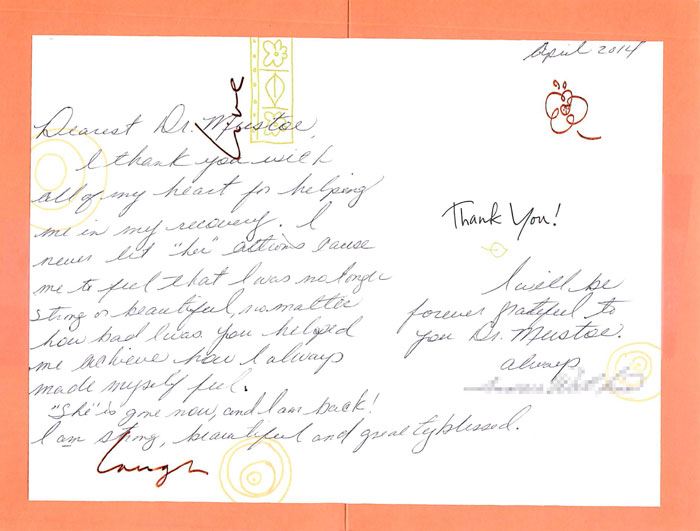 April 2014
Love
Dearest Dr. Mustoe,
I thank you with
all of my heart for helping
me in my recovery. I
never let "her" actions cause
me to feel that I was no longer
strong or beautiful, no matter
how bad I was. You helped
me achieve how I always
made myself feel.
"She" is gone now, and I am back!
I am strong, beautiful and greatly blessed.
Laugh
Thank You!
I will be
forever grateful to
you Dr. Mustoe.
always